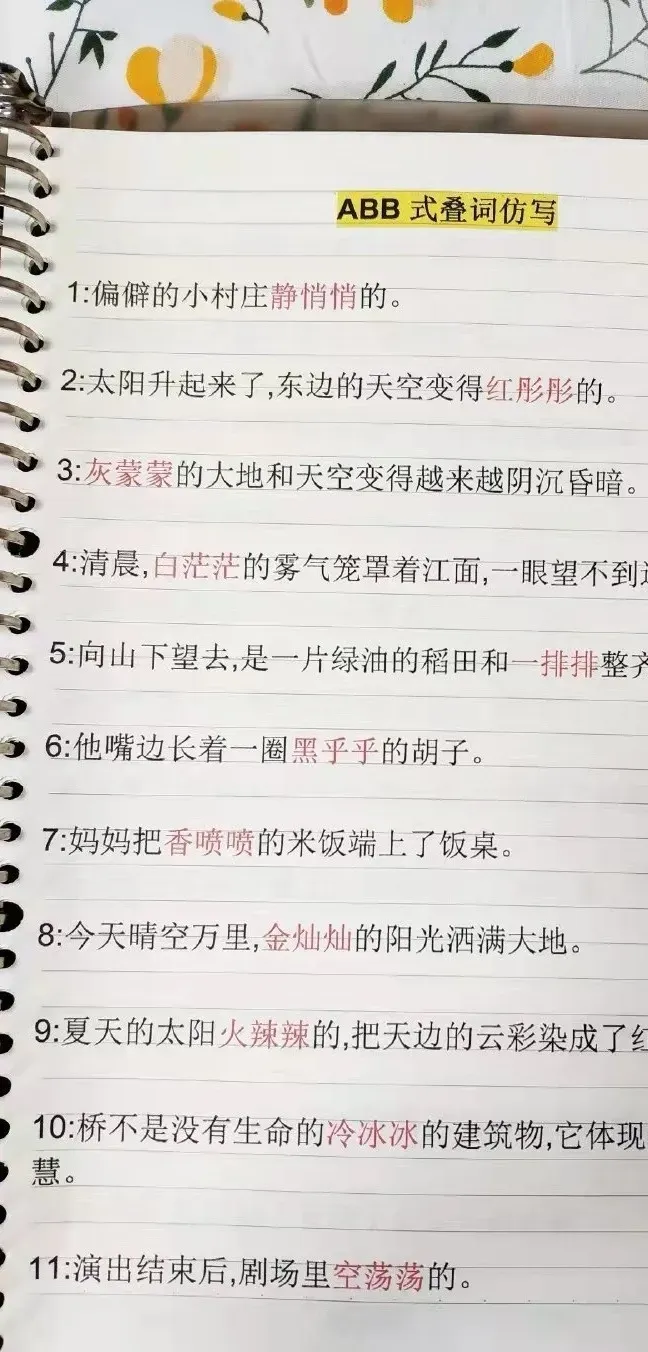 ABB 式叠词仿写
1:偏僻的小村庄静悄悄的。
2:太阳升起来了,东边的天空变得红彤彤的。
3:灰蒙蒙的大地和天空变得越来越阴沉昏暗。
4:清晨,白茫茫的雾气笼罩着江面,一眼望不到
5:向山下望去,是一片绿油的稻田和一排排整齐
6:他嘴边长着一圈黑乎乎的胡子。
7:妈妈把香喷喷的米饭端上了饭桌。
8:今天晴空万里,金灿灿的阳光洒满大地。
9:夏天的太阳火辣辣的,把天边的云彩染成了红
10:桥不是没有生命的冷冰冰的建筑物,它体现
慧。
11:演出结束后,剧场里空荡荡的。